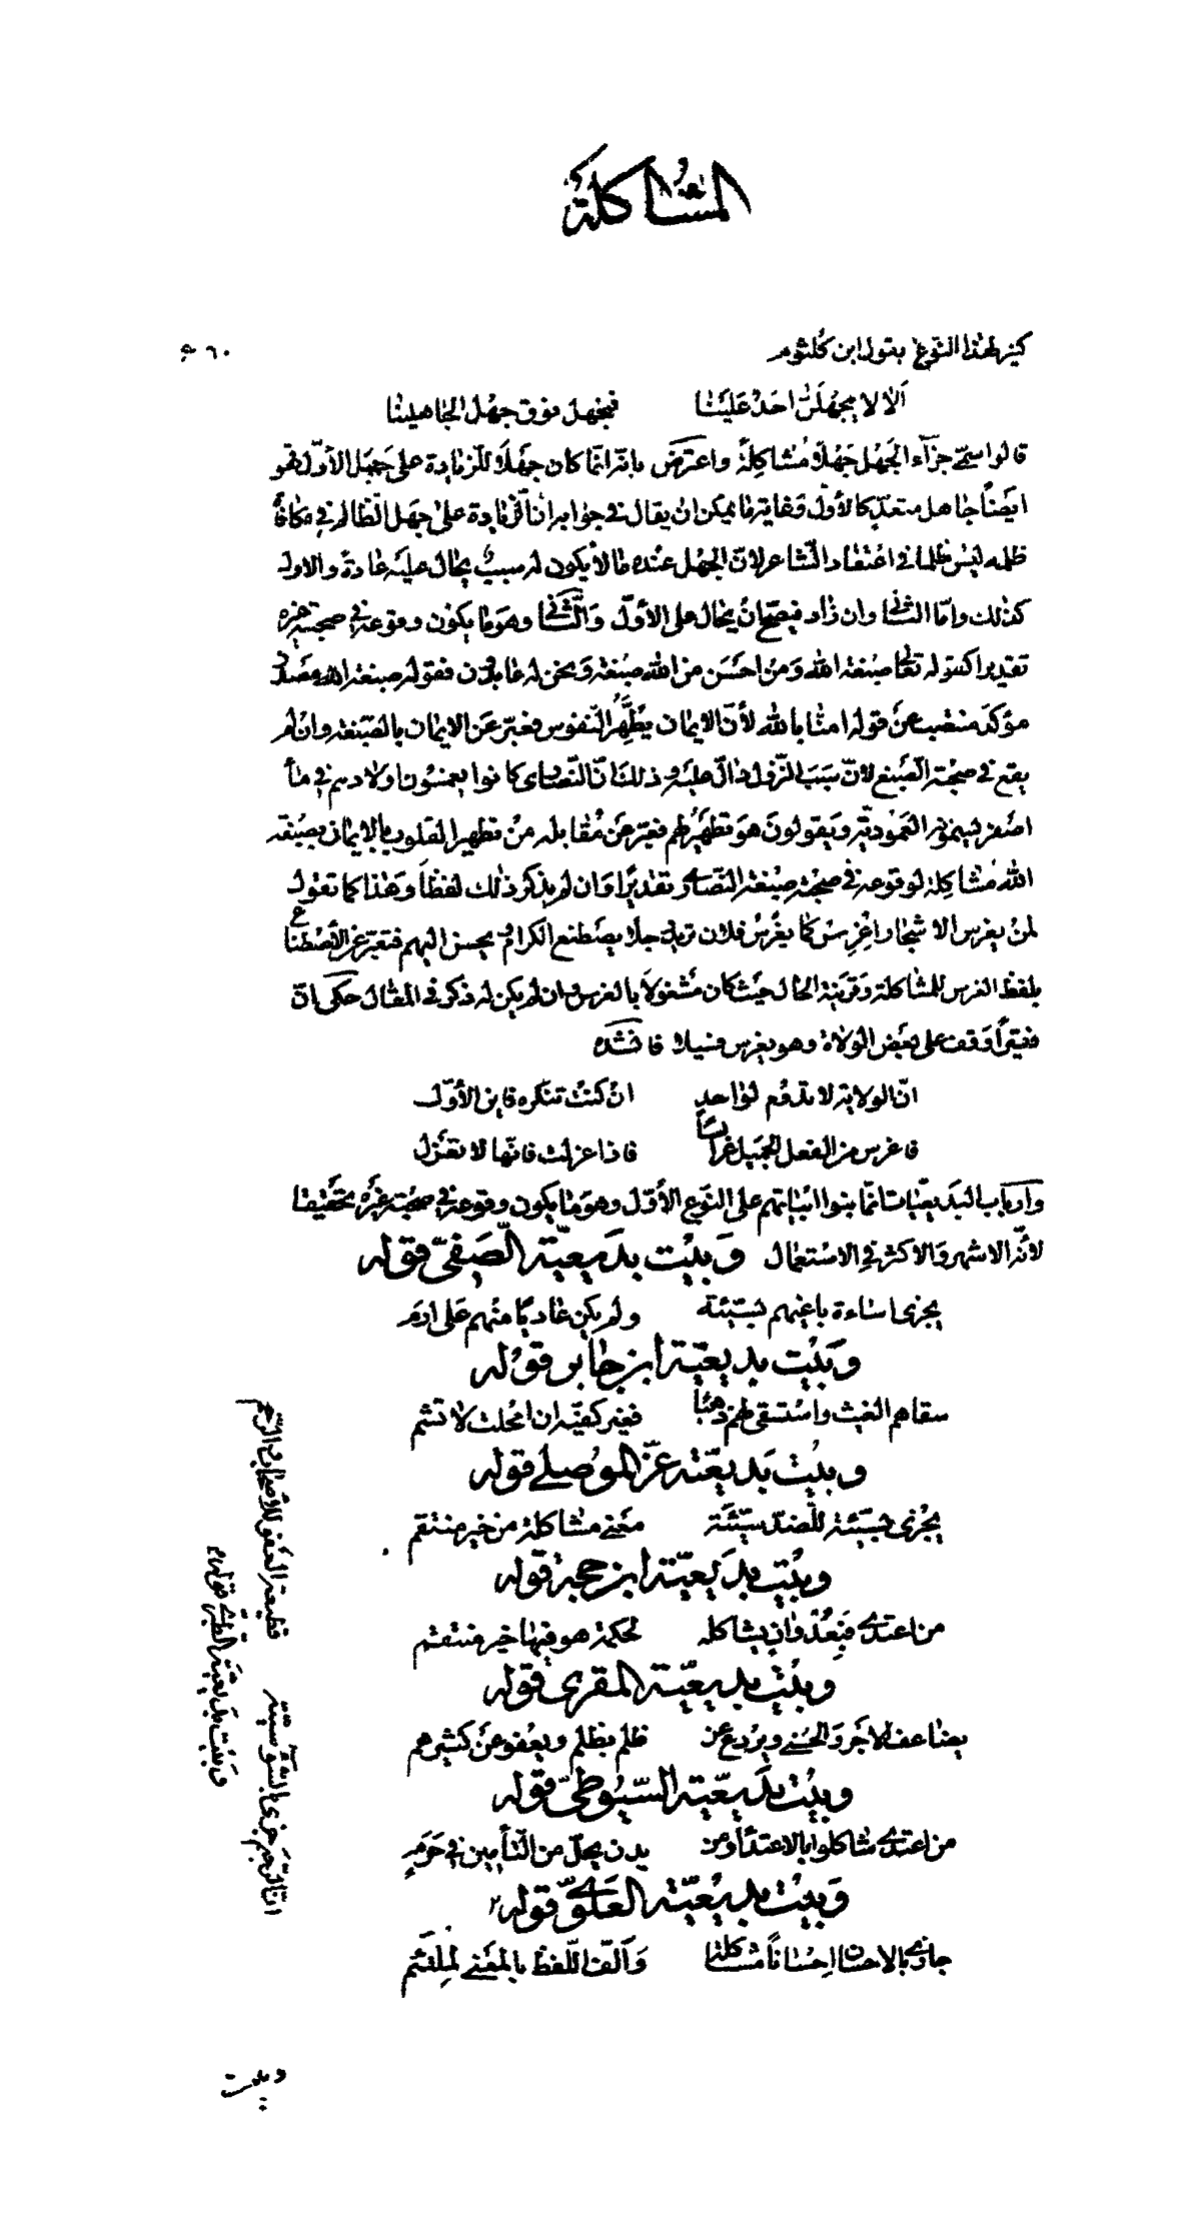 المشاكلة
كثير لهذا النوع بقول ابن كلثوم
٦٠
ألا لا يجهلن احد علينا فنجهل فوق جهل الجاهلينا
قالوا سمى جزآء الجهل جهلا مشاكلة واعترض بانه انما كان جهلا للزيادة على جهل الأول فهو
ايضاً جاهل متعد كالأول وغاية ما يمكن ان يقال في جوابه ان الزيادة على جهل الظالم في مكافأة
ظلمه ليس ظلما في اعتقاد الشاعر لان الجهل عنده ما لا يكون له سبب يحال عليه عادة والاول
كذلك واما الثاني وان زاد فيصح ان يحال على الأول والثاني وهو ما يكون وقوعه في صحبة غيره
تقديرا كقوله تعالى صبغة الله ومن احسن من الله صبغة ونحن له عابدون فقوله صبغة الله مصدر
مؤكد منتصب عن قوله امنا بالله لأن الايمان يطهر النفوس فعبر عن الايمان بالصبغة وان لم
يقع في صحبة الصبغ لان سبب النزول دال عليه وذلك ان النصارى كانوا يغمسون اولادهم في مأ
اصفر ليسمونه المعمودية ويقولون هو تطهير لهم فعبر عن مقابله من تطهير القلوب بالايمان بصبغة
الله مشاكلة لوقوعه في صحبة صبغة النصارى تقديرا وان لم يذكر ذلك لفظا وهذا كما تقول
لمن يغرس الاشجار اغرس كما يغرس فلان تريد رجلا يصطنع الكرام ويحسن اليهم فتعبر عن الاصطناع
بلفظ الغرس للمشاكلة وقرينة الحال حيث كان مشغولا بالغرس وان لم يكن له ذكر في المقال حكى ان
فقيرا وقف على بعض الولاة وهو يغرس فسيلا فانشده
ان الولاية لا تدوم لواحد ان كنت تنكره فاين الأول
فاغرس من الفعل الجميل غرائسا فاذا عزلت فانها لا تعزل
وارباب البديعيات انما بنوا ابياتهم على النوع الأول وهو ما يكون وقوعه في صحبة غيره تحقيقا
لأنه الاشهر والاكثر في الاستعمال وبيت بديعية الصفي قوله
يجزى اساءة باغيهم بسيئة ولم يكن عاديا منهم على ارم
وبيت بديعية ابن جابر قوله
سقاهم الغيث واستسقى لهم ذهبا فغير كفيه ان امحلت لا تشم
وبيت بديعية عز الموصلي قوله
يجزى بسيئة للضد سيئة معنى مشاكلة من خير منتقم
وبيت بديعية ابن حجة قوله
من اعتدى فبعدوان يشاكله لحكمة هو فيها خير منتقم
وبيت بديعية المقري قوله
يضاعف الاجر والحسنى ويردع عن ظلم بظلم ويعفو عن كثيرهم
وبيت بديعية السيوطي قوله
من اعتدى شاكلوا بالاعتدأ ومن يدن يحل من التأمين في حرم
وبيت بديعية العلوي قوله
جازى بالاحسان احسانا مشاكلة وألف اللفظ بالمعنى لملتئم
وبيت بديعية الطبري قوله